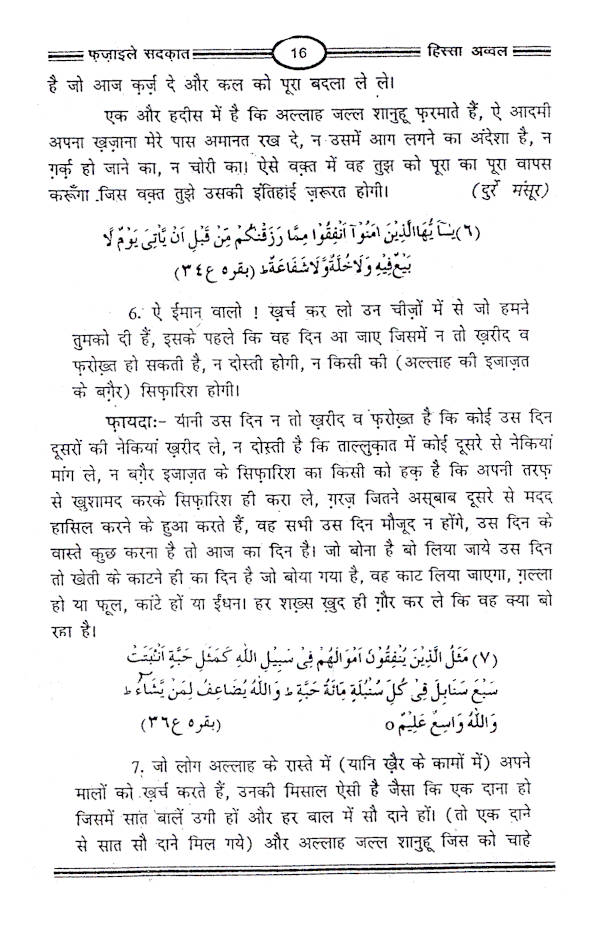 फ़ज़ाइले सदक़ात 16 हिस्सा अव्वल
है जो आज क़र्ज़ दे और कल को पूरा बदला ले ले।
एक और हदीस में है कि अल्लाह जल्ल शानुहू फ़रमाते हैं, ऐ आदमी
अपना ख़ज़ाना मेरे पास अमानत रख दे, न उसमें आग लगने का अंदेशा है, न
ग़र्क़ हो जाने का, न चोरी का। ऐसे वक़्त में वह तुझ को पूरा का पूरा वापस
करूँगा जिस वक़्त तुझे उसकी इंतिहाई ज़रूरत होगी। (दुर्रे मंसूर)
(٦) يٰٓاَيُّهَا الَّذِيْنَ اٰمَنُوْٓا اَنْفِقُوْا مِمَّا رَزَقْنٰكُمْ مِّنْ قَبْلِ اَنْ يَّاْتِىَ يَوْمٌ لَّا
بَيْعٌ فِيْهِ وَلَا خُلَّةٌ وَّلَا شَفَاعَةٌ ط (بقره ع ٣٤)
6. ऐ ईमान वालो ! ख़र्च कर लो उन चीज़ों में से जो हमने
तुमको दी हैं, इसके पहले कि वह दिन आ जाए जिसमें न तो ख़रीद व
फ़रोख़्त हो सकती है, न दोस्ती होगी, न किसी की (अल्लाह की इजाज़त
के बग़ैर) सिफ़ारिश होगी।
फ़ायदाः- यानी उस दिन न तो ख़रीद व फ़रोख़्त है कि कोई उस दिन
दूसरों की नेकियां ख़रीद ले, न दोस्ती है कि ताल्लुक़ात में कोई दूसरे से नेकियां
मांग ले, न बग़ैर इजाज़त के सिफ़ारिश का किसी को हक़ है कि अपनी तरफ़
से ख़ुशामद करके सिफ़ारिश ही करा ले, ग़रज़ जितने अस्बाब दूसरे से मदद
हासिल करने के हुआ करते हैं, वह सभी उस दिन मौजूद न होंगे, उस दिन के
वास्ते कुछ करना है तो आज का दिन है। जो बोना है बो लिया जाये उस दिन
तो खेती के काटने ही का दिन है जो बोया गया है, वह काट लिया जाएगा, ग़ल्ला
हो या फूल, कांटे हों या ईंधन। हर शख़्स ख़ुद ही ग़ौर कर ले कि वह क्या बो
रहा है।
(٧) مَثَلُ الَّذِيْنَ يُنْفِقُوْنَ اَمْوَالَهُمْ فِىْ سَبِيْلِ اللّٰهِ كَمَثَلِ حَبَّةٍ اَنْۢبَتَتْ
سَبْعَ سَنَابِلَ فِىْ كُلِّ سُنْۢبُلَةٍ مِّائَةُ حَبَّةٍ ط وَاللّٰهُ يُضَاعِفُ لِمَنْ يَّشَآءُ ط
وَاللّٰهُ وَاسِعٌ عَلِيْمٌ o (بقره ع ٣٦)
7. जो लोग अल्लाह के रास्ते में (यानि ख़ैर के कामों में) अपने
मालों को ख़र्च करते हैं, उनकी मिसाल ऐसी है जैसा कि एक दाना हो
जिसमें सात बालें उगी हों और हर बाल में सौ दाने हों। (तो एक दाने
से सात सौ दाने मिल गये) और अल्लाह जल्ल शानुहू जिस को चाहे